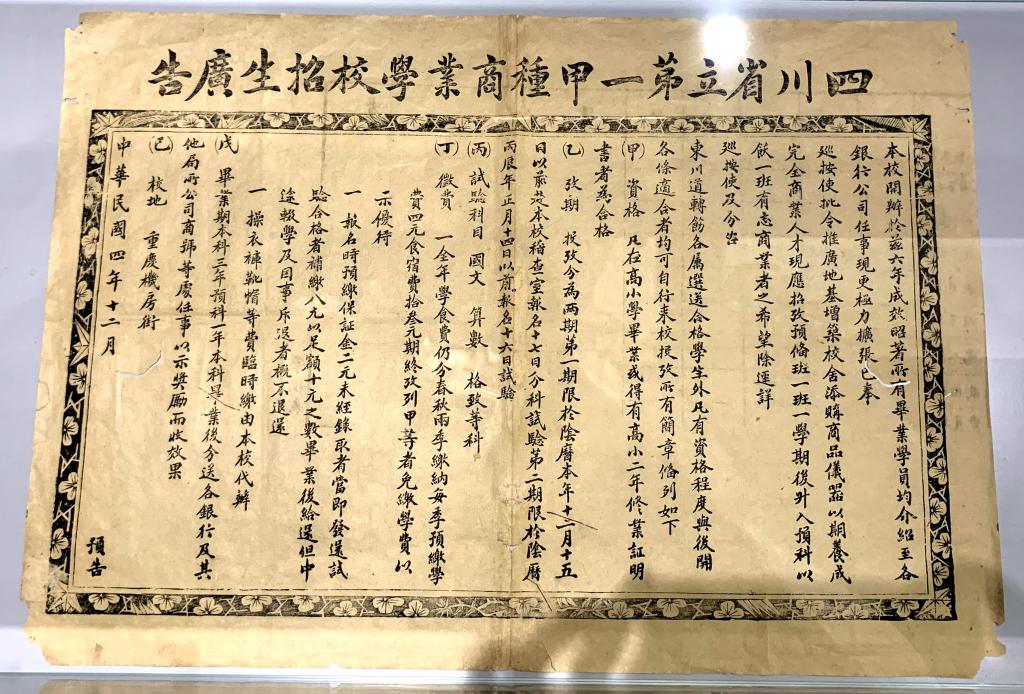 四川省立第一甲種商業學校招生廣告
本校開辦於茲六年成效昭著所有畢業學員均介紹至各
銀行公司任事現更極力擴張已奉
巡按使批令推廣地基增築校舍添購商品儀器以期養成
完全商業人才現應招攷預備班一班一學期後升入預科以
飫一班有志商業者之希望除逕詳
巡按使及分咨
東川道轉飭各屬選送合格學生外凡有資格程度與後開
各條適合者均可自行來校投攷所有簡章備列如下
(甲) 資格 凡在高小學畢業或得有高小二年修業証明
書者為合格
(乙) 攷期 投攷分為兩期第一期限於陰曆本年十二月十五
日以前赴本校稽查室報名十七日分科試驗第二期限於陰曆
丙辰年正月十四日以前報名十六日試驗
(丙) 試驗科目 國文 算數 格致等科
(丁) 徵費 一全年學食費仍分春秋兩季繳納每季預繳學
費四元食宿費拾叁元期終攷列甲等者免繳學費以
示優待
一 報名時預繳保証金二元未經錄取者當即發還試
驗合格者補繳八元以足額十元之數畢業後給還但中
途報學及因事斥退者概不退還
一 操衣褲靴帽等費臨時繳由本校代辦
(戊) 畢業期本科三年預科一年本科畢業後分送各銀行及其
他局所公司商號等處任事以示獎勵而收效果
(已) 校地 重慶機房街
中華民國四年十二月
預告